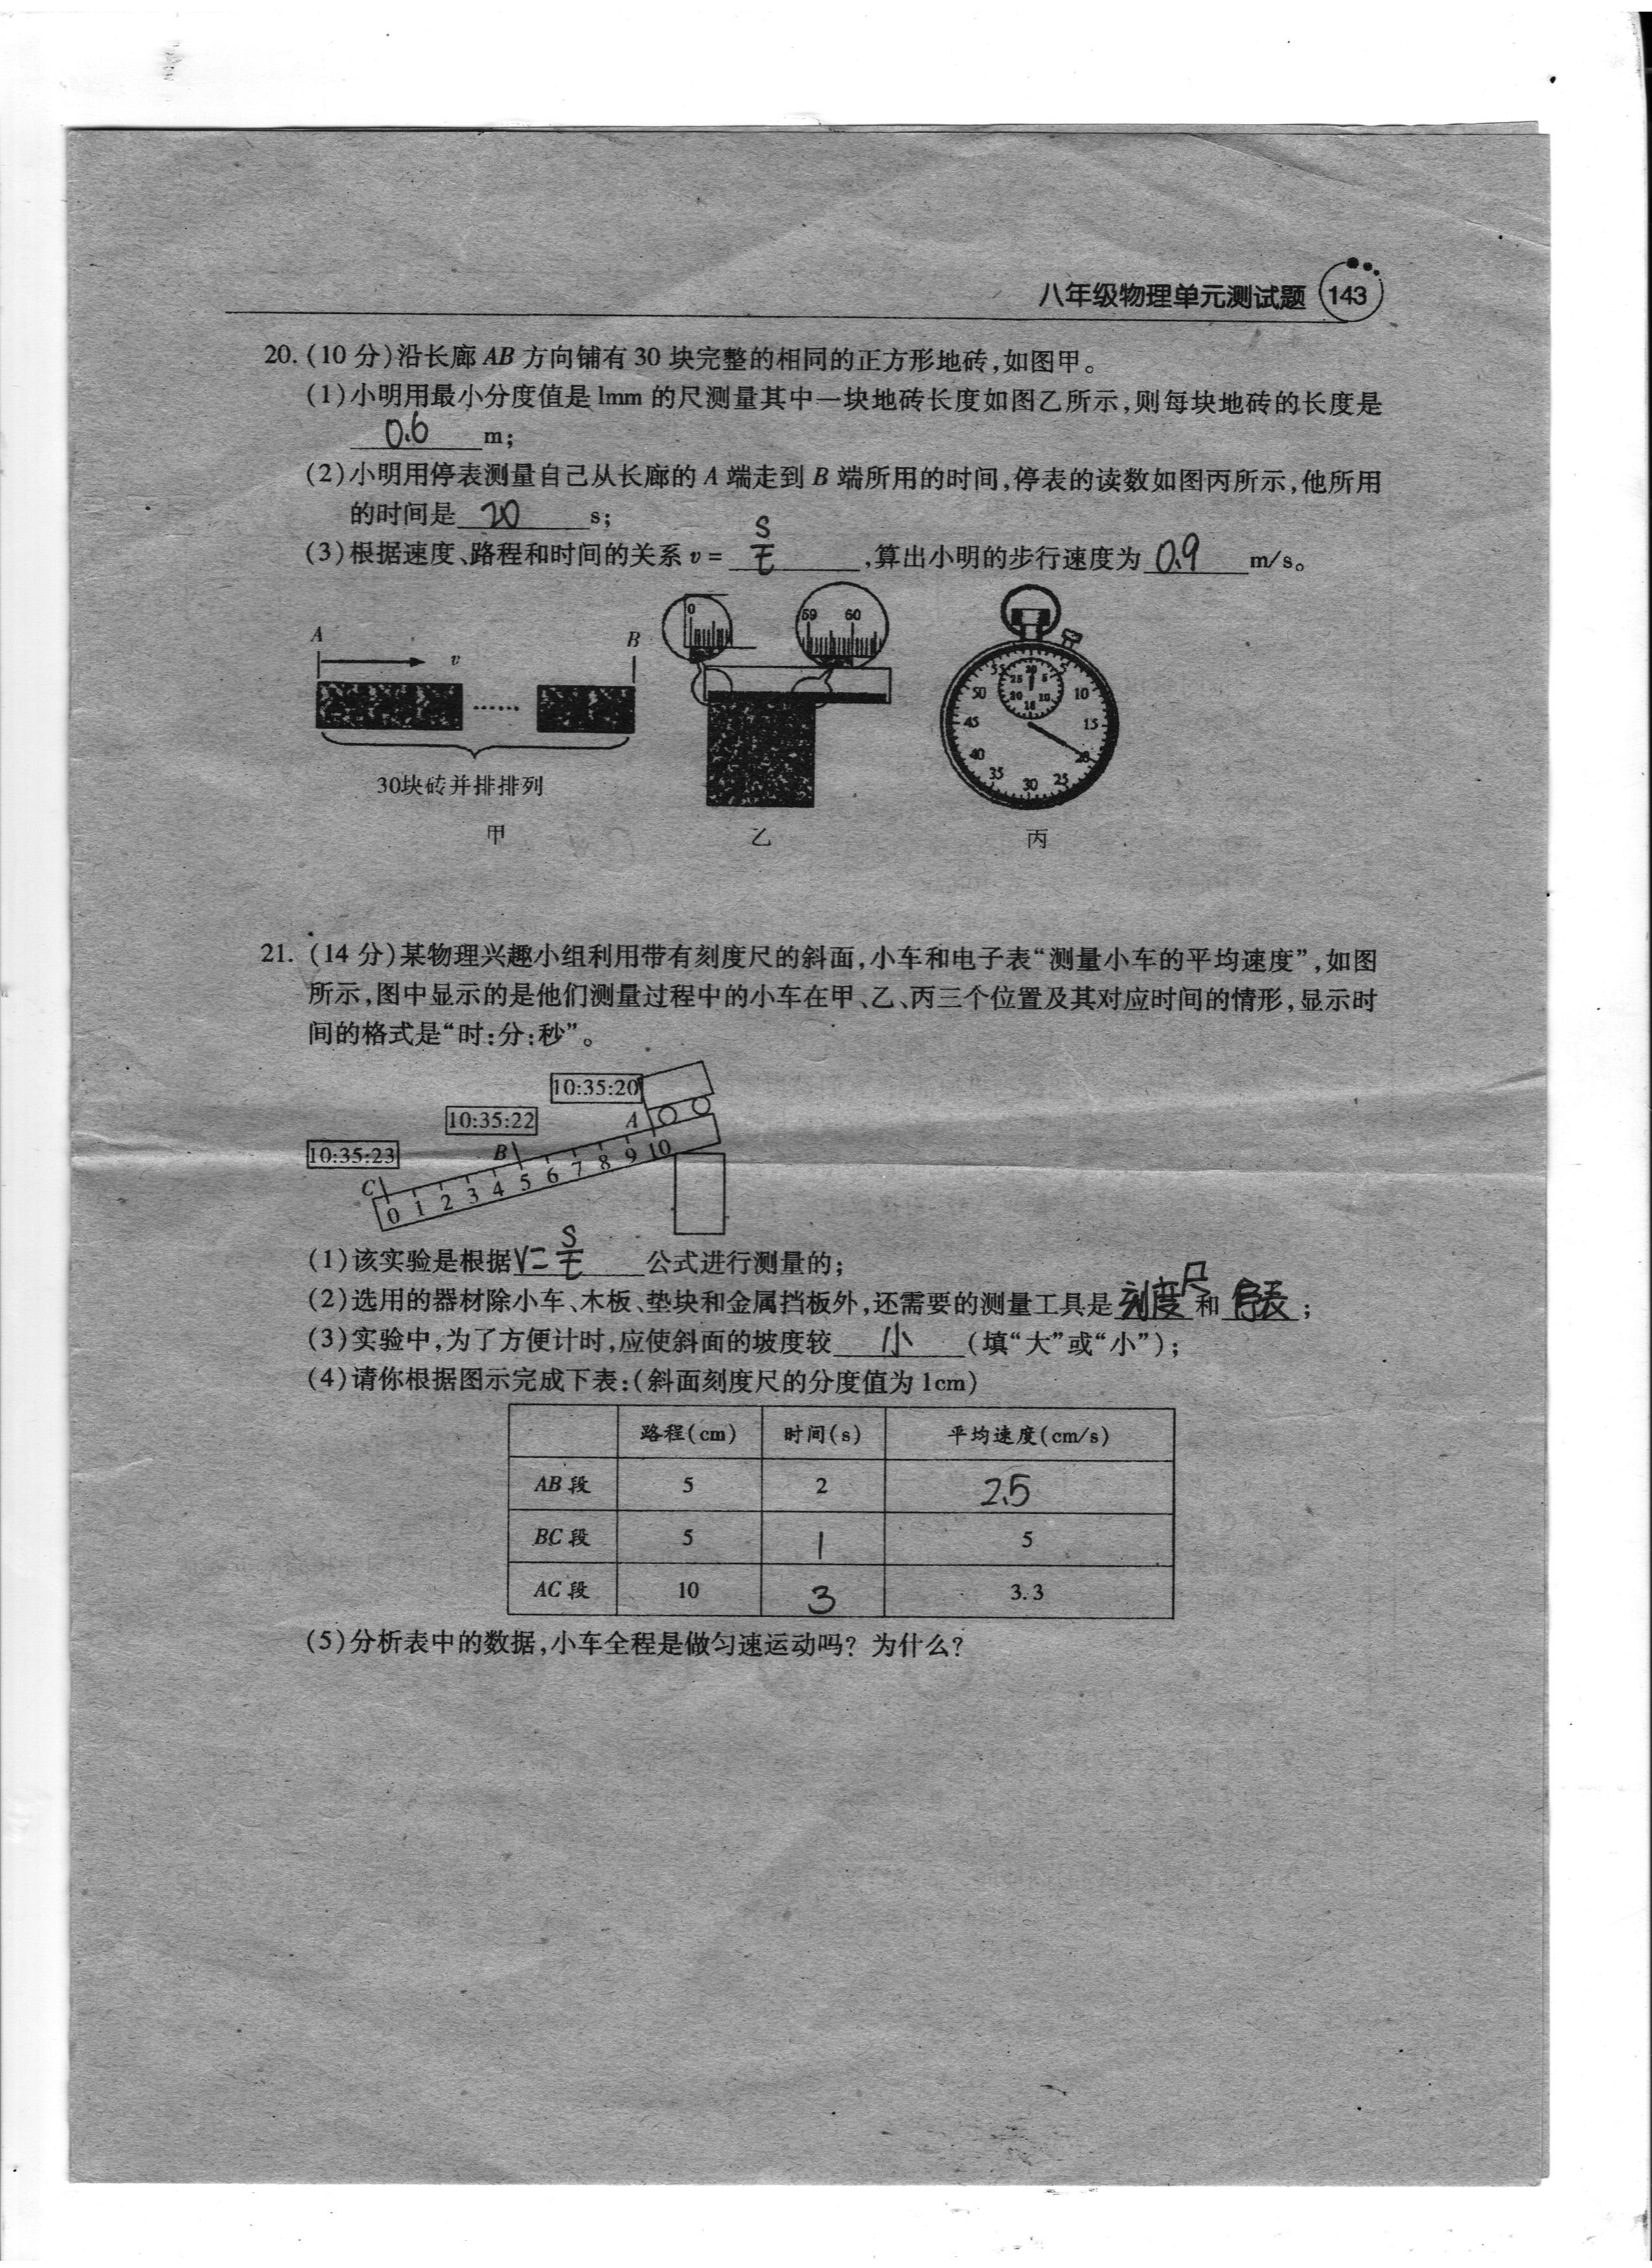 八年级物理单元测试题 143
20. (10 分)沿长廊 AB 方向铺有 30 块完整的相同的正方形地砖,如图甲。
(1)小明用最小分度值是 1mm 的尺测量其中一块地砖长度如图乙所示,则每块地砖的长度是
0.6 m;
(2)小明用停表测量自己从长廊的 A 端走到 B 端所用的时间,停表的读数如图丙所示,他所用
的时间是 20 s;
(3)根据速度、路程和时间的关系 v = s/t ,算出小明的步行速度为 0.9 m/s。
A v B
30块砖并排排列
甲
0 59 60
乙
55 5 50 10 45 15 40 20 35 30 25
丙
21. (14 分)某物理兴趣小组利用带有刻度尺的斜面,小车和电子表“测量小车的平均速度”,如图
所示,图中显示的是他们测量过程中的小车在甲、乙、丙三个位置及其对应时间的情形,显示时
间的格式是“时:分:秒”。
10:35:20
10:35:22 A
10:35:23 B
C
0 1 2 3 4 5 6 7 8 9 10
(1)该实验是根据 V=s/t 公式进行测量的;
(2)选用的器材除小车、木板、垫块和金属挡板外,还需要的测量工具是 刻度尺 和 ;
(3)实验中,为了方便计时,应使斜面的坡度较 小 (填“大”或“小”);
(4)请你根据图示完成下表:(斜面刻度尺的分度值为 1cm)
路程(cm) 时间(s) 平均速度(cm/s)
AB 段 5 2 2.5
BC 段 5 1 5
AC 段 10 3 3.3
(5)分析表中的数据,小车全程是做匀速运动吗? 为什么?